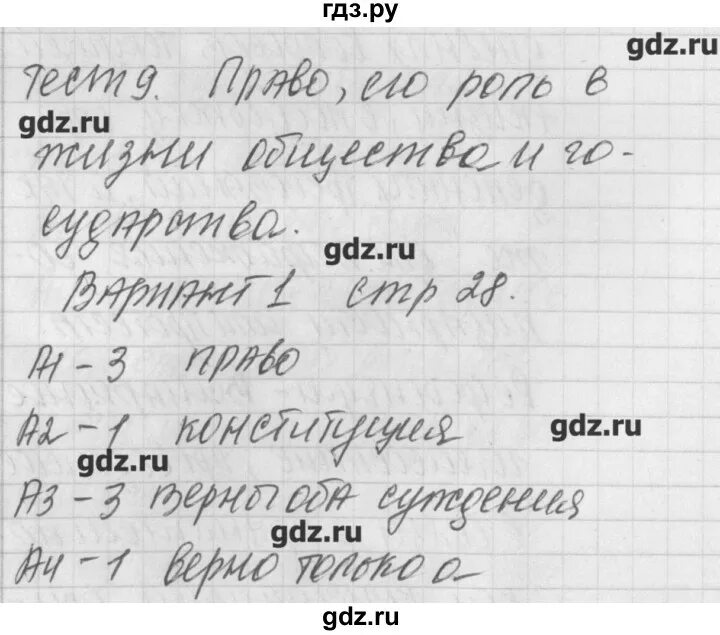 гдз.ру
gdz.ru
тест 9. Право, его роль в
gdz.ru
жизни общества и го-
сударства.
gdz.ru
Вариант 1 стр 28.
А1 - 3 право
А2 - 1 конституция
gdz.ru
gdz.ru
А3 - 3 верны оба суждения
gdz.ru
А4 - 1 верно только а
gdz.ru